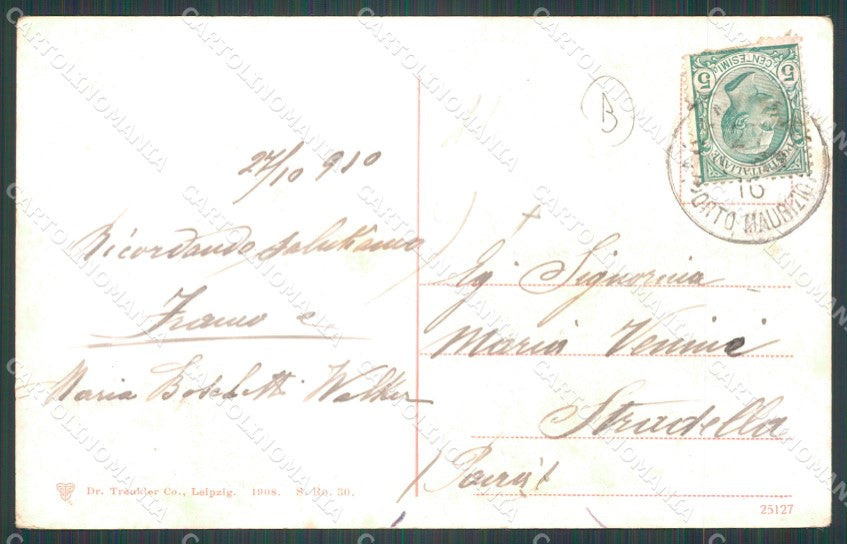 27/10 910
Ricordando salutiamo
Franco e
Maria Boschetti Walker
Dr. Trenkler Co., Leipzig. 1908. S. Rn. 30.
B
CENTESIMI
5 5
POSTE ITALIANE
10
PORTO MAURIZIO
Signorina
Maria Vennini
Stradella
25127
CARTOLINOMANIA